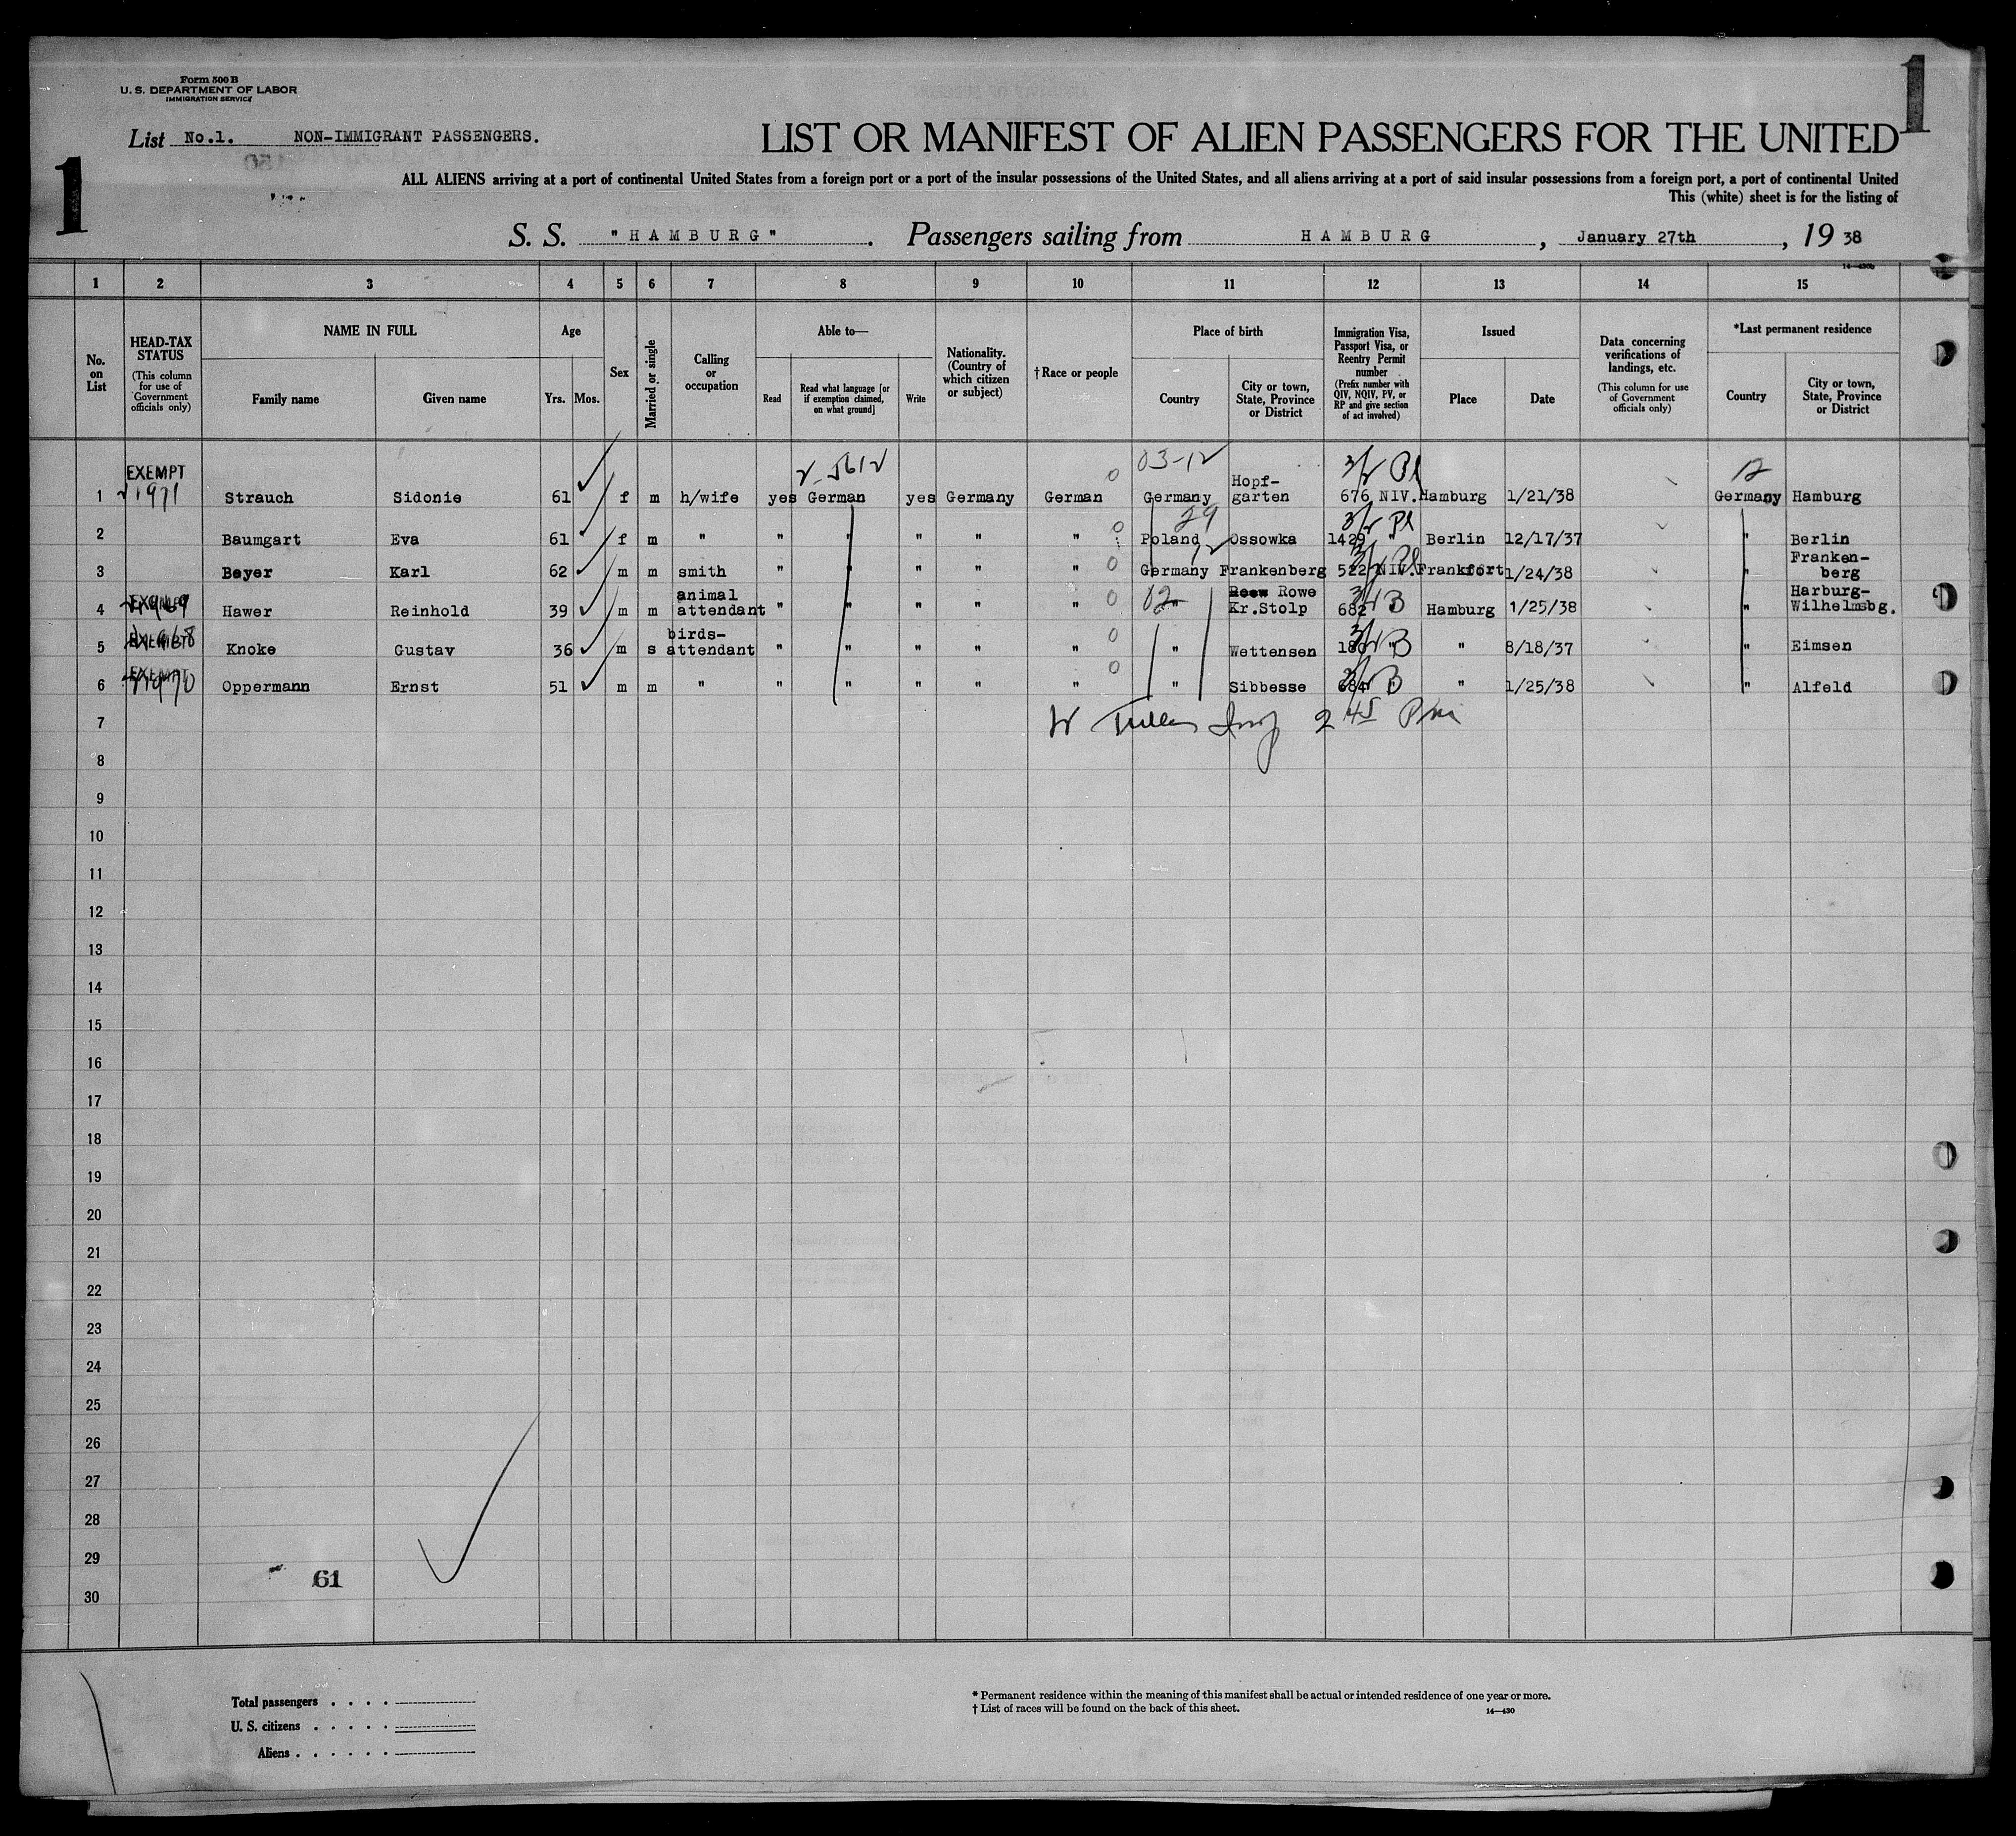 Form 500 B
U. S. DEPARTMENT OF LABOR
IMMIGRATION SERVICE
1
List No.1. NON-IMMIGRANT PASSENGERS.
LIST OR MANIFEST OF ALIEN PASSENGERS FOR THE UNITED
1
ALL ALIENS arriving at a port of continental United States from a foreign port or a port of the insular possessions of the United States, and all aliens arriving at a port of said insular possessions from a foreign port, a port of continental United
This (white) sheet is for the listing of
S. S. "HAMBURG". Passengers sailing from HAMBURG, January 27th, 1938
14—430b
1 2 3 4 5 6 7 8 9 10 11 12 13 14 15
No. on List
HEAD-TAX STATUS (This column for use of Government officials only)
NAME IN FULL
Family name Given name
Age
Yrs. Mos.
Sex
Married or single
Calling or occupation
Able to—
Read
Read what language [or if exemption claimed, on what ground]
Write
Nationality. (Country of which citizen or subject)
†Race or people
Place of birth
Country
City or town, State, Province or District
Immigration Visa, Passport Visa, or Reentry Permit number (Prefix number with QIV, NQIV, PV, or RP and give section of act involved)
Issued
Place Date
Data concerning verifications of landings, etc. (This column for use of Government officials only)
*Last permanent residence
Country
City or town, State, Province or District
03-12
12
1 EXEMPT Strauch Sidonie 61 f m h/wife yes German yes Germany German Germany Hopf-garten 676 NIV. Hamburg 1/21/38 Germany Hamburg
29
2 Baumgart Eva 61 f m " " " " " " Poland Ossowka 1429 " Berlin 12/17/37 " Berlin
12
3 Beyer Karl 62 m m smith " " " " " Germany Frankenberg 522 NIV. Frankfort 1/24/38 " Franken-berg
02
4 EXEMPT Hawer Reinhold 39 m m animal attendant " " " " " " Rowe Kr.Stolp 682 " Hamburg 1/25/38 " Harburg-Wilhelmsbg.
5 EXEMPT Knoke Gustav 36 m s birds-attendant " " " " " " Wettensen 180 " " 8/18/37 " Eimsen
6 EXEMPT Oppermann Ernst 51 m m " " " " " " " Sibbesse 684 " " 1/25/38 " Alfeld
2 45 Pm
7
8
9
10
11
12
13
14
15
16
17
18
19
20
21
22
23
24
25
26
27
28
29
61
30
Total passengers . . . .
U. S. citizens . . . . .
Aliens . . . . . .
* Permanent residence within the meaning of this manifest shall be actual or intended residence of one year or more.
† List of races will be found on the back of this sheet.
14—430